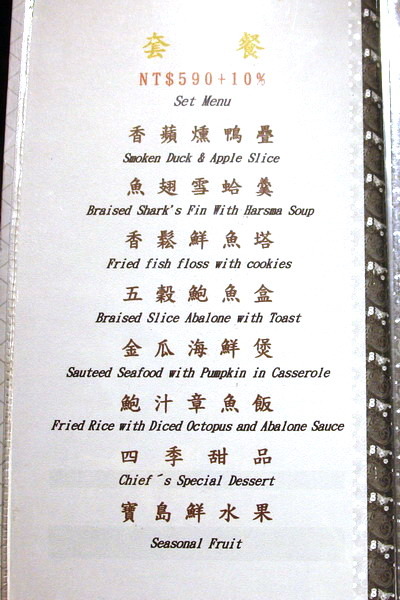 套 餐
NT$590+10%
Set Menu
香蘋燻鴨疊
Smoken Duck & Apple Slice
魚翅雪蛤羹
Braised Shark's Fin With Harsma Soup
香鬆鮮魚塔
Fried fish floss with cookies
五穀鮑魚盒
Braised Slice Abalone with Toast
金瓜海鮮煲
Sauteed Seafood with Pumpkin in Casserole
鮑汁章魚飯
Fried Rice with Diced Octopus and Abalone Sauce
四季甜品
Chief´s Special Dessert
寶島鮮水果
Seasonal Fruit